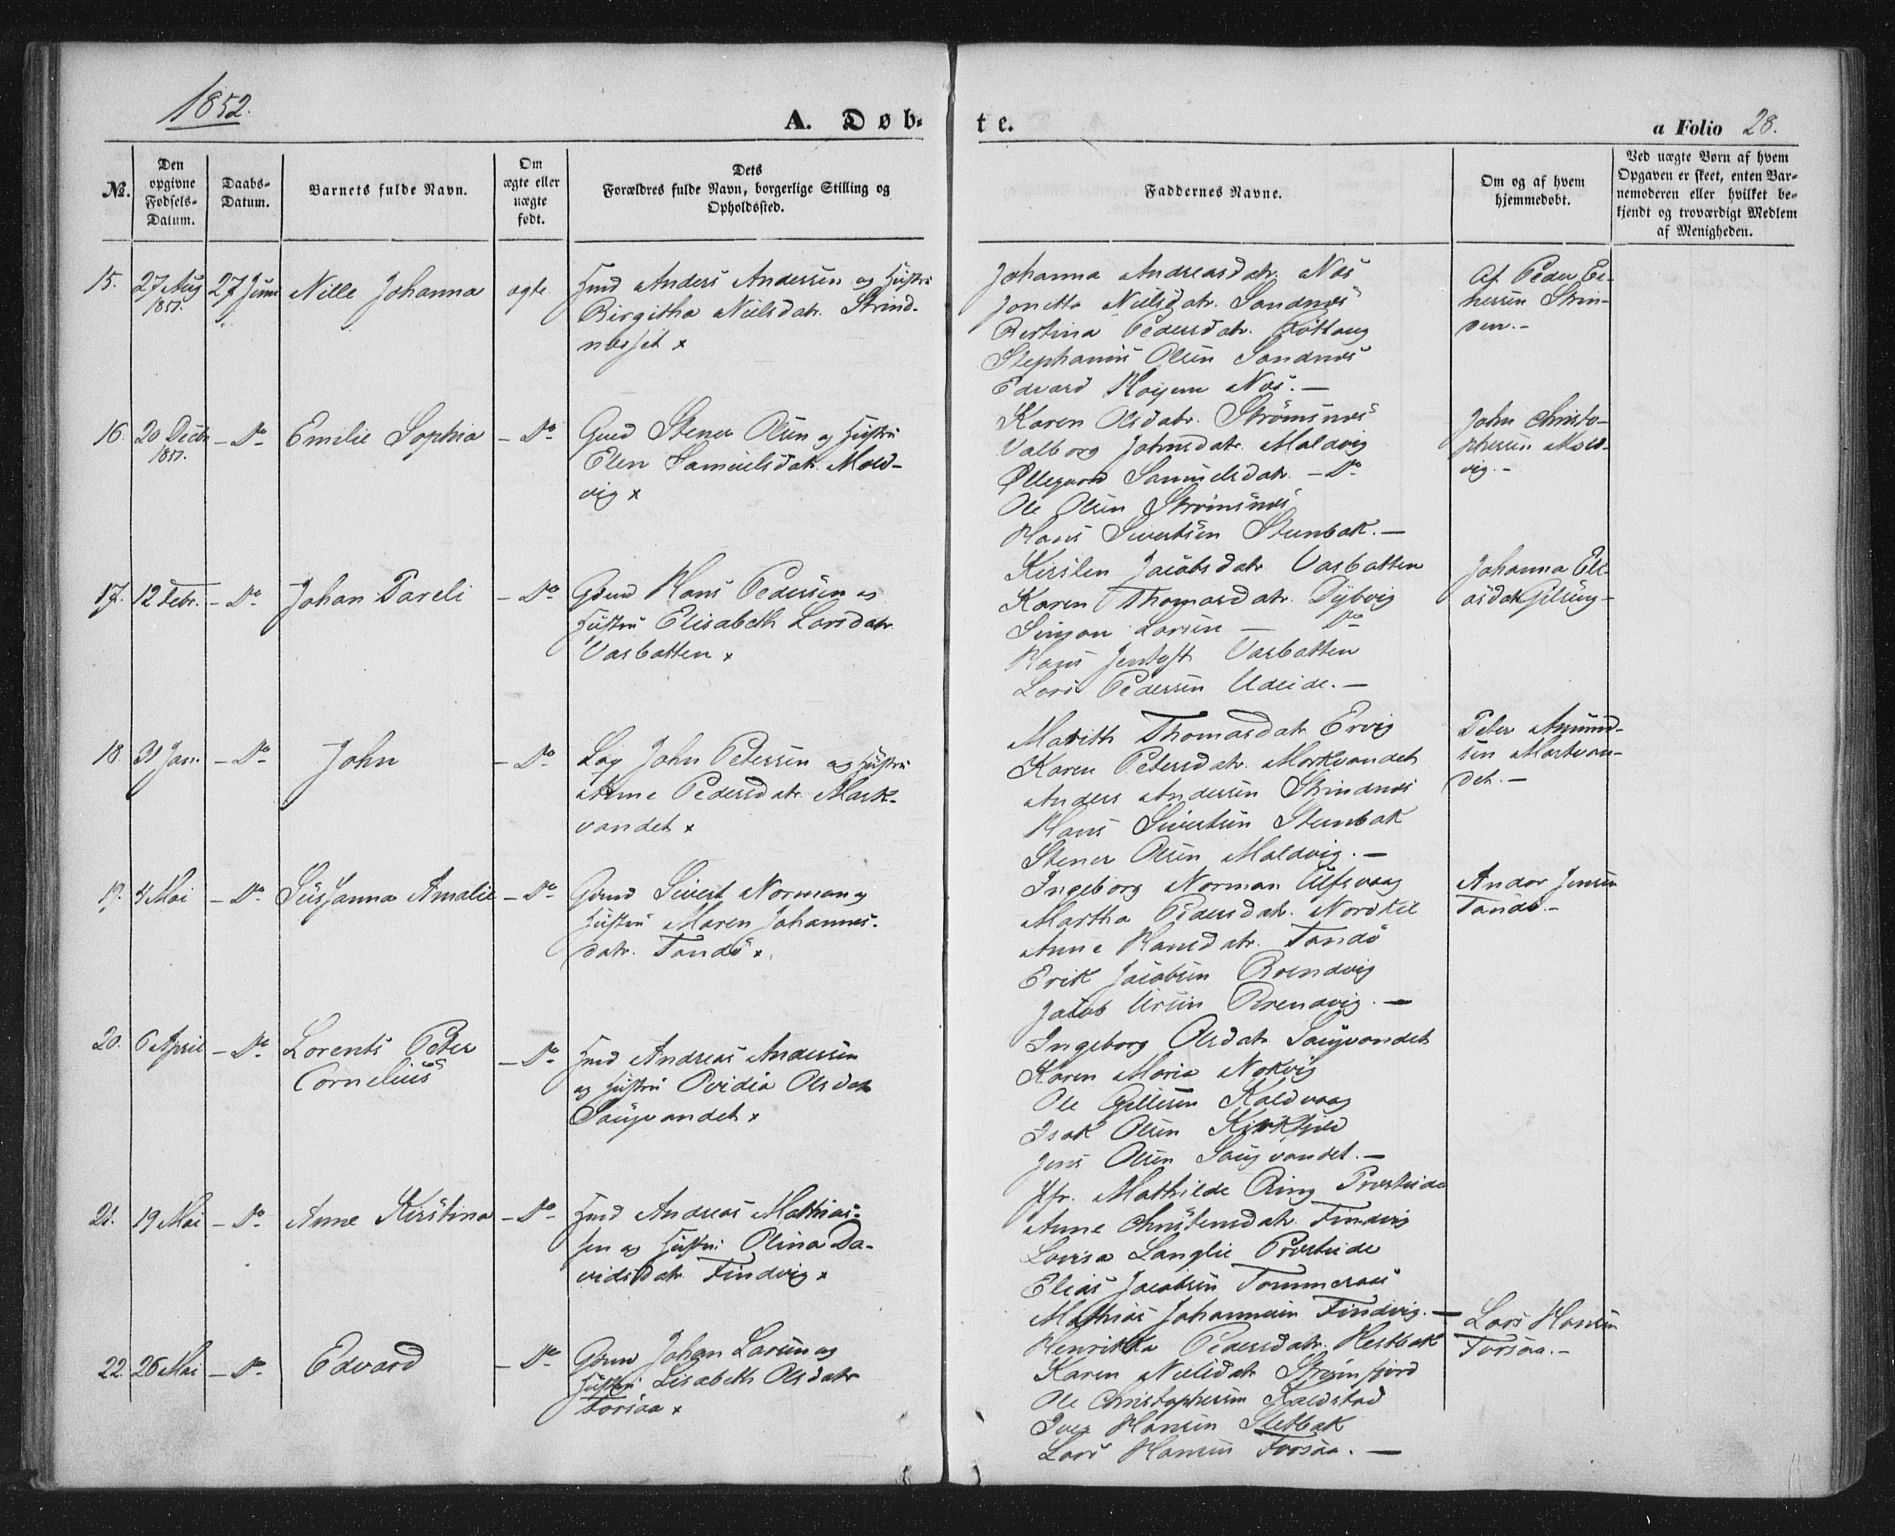 1852.
A. Døb-
te.
a Folio 28.
No.
Den opgivne Fødsels-Datum.
Daabs-Datum.
Barnets fulde Navn.
Om ægte eller uægte født.
Dets Forældres fulde Navn, borgerlige Stilling og Opholdssted.
Faddernes Navne.
Om og af hvem hjemmedøbt.
Ved uægte Børn af hvem Opgaven er skeet, enten Barnemoderen eller hvilket bekjendt og troværdigt Medlem af Menigheden.
15. 27 Aug 1851. 27 Juni Nille Johanna ægte
Hmd Anders Andersen og Hustru
Birgitha Nielsdatr. Strind-
næsset x
Johanna Andreasdatr. Næs
Jonetta Nielsdatr. Sandnæs
Bertina Pedersdatr.
Stephanus Olsen Sandnæs
Edvard Næs. —
Af Peder
Strin-
16. 20 Decbr 1851. - Do Emilie Sophia - Do
Gmd Stener Olsen og Hustru
Elen Samuelsdatr. Mold-
vig x
Karen Olsdatr. Strømsnæs
Valborg Johnsdatr. Maldvig
Øllegaard Samuelsdatr. - Do
Ole Olsen Strømsnæs
Hans Sivertsen Stenbak. —
John Christo-
phersen Mold-
vig. -
17. 12 Febr. - Do Johan Pareli - Do
Gmd Hans Pedersen og
Hustru Elisabeth Larsdatr.
Vasbotten x
Kirsten Jacobsdatr Vasbotten
Karen Thomasdatr. Dybvig
Simon Larsen — Do
Hans Jentoft Vasbotten
Lars Pedersen Udeide. —
Johanna Eli-
asdatr
18. 31 Jan. - Do John - Do
Lag John Petersen og Hustru
Anne Pedersdatr. Mark-
vandet x
Marith Thomasdatr Ervig
Karen Petersdatr. Markvandet
Anders Andersen Strindnæs
Hans Sivertsen Stenbak
Stener Olsen Maldvig. —
Peter Amund-
sen Markvan-
det. —
19. 4 Mai - Do Susjanna Amalie - Do
Gmd Sivert Norman og
Hustru Maren Johannes-
datr. Tandø x
Ingeborg Norman Ulfsvaag
Martha Pedersdatr. Nordkil
Anne Hansdatr. Tandø
Erik Jacobsen Brendvig
Jacob Brendvig. —
Andor Jensen
Tandø. -
20. 6 April - Do Lorents Peter
Cornelius - Do
Hmd Andreas Andersen
og Hustru Ovidia Olsdatr
Saugvandet x
Ingeborg Olsdatr Saugvandet
Karen Maria Nokvig
Ole Kaldvaag
Isak Olsen Kirkfjeld
Jens Olsen Saugvandet. —
21. 19 Mai - Do Anne Kirstina - Do
Hmd Andreas Mathias-
sen og Hustru Olina Da-
vidsdatr Findvig x
Jfr. Mathilde Ring Presteide
Anne Christensdatr. Findvig
Lovisa Langlie Presteide
Elias Jacobsen Tømmeraas
Mathias Johannesen Findvig. —
22. 26 Mai - Do Edvard - Do
Gmd Johan Larsen og
Hustru Lisabeth Olsdatr
Forsaa x
Henrikka Pedersdatr. Hestbak
Karen Nielsdatr. Strømfjord
Ole Christophersen Kaldstad
Iver Hansen Sletbak
Lars Hansen Forsaa. —
Lars Hansen
Forsaa. -